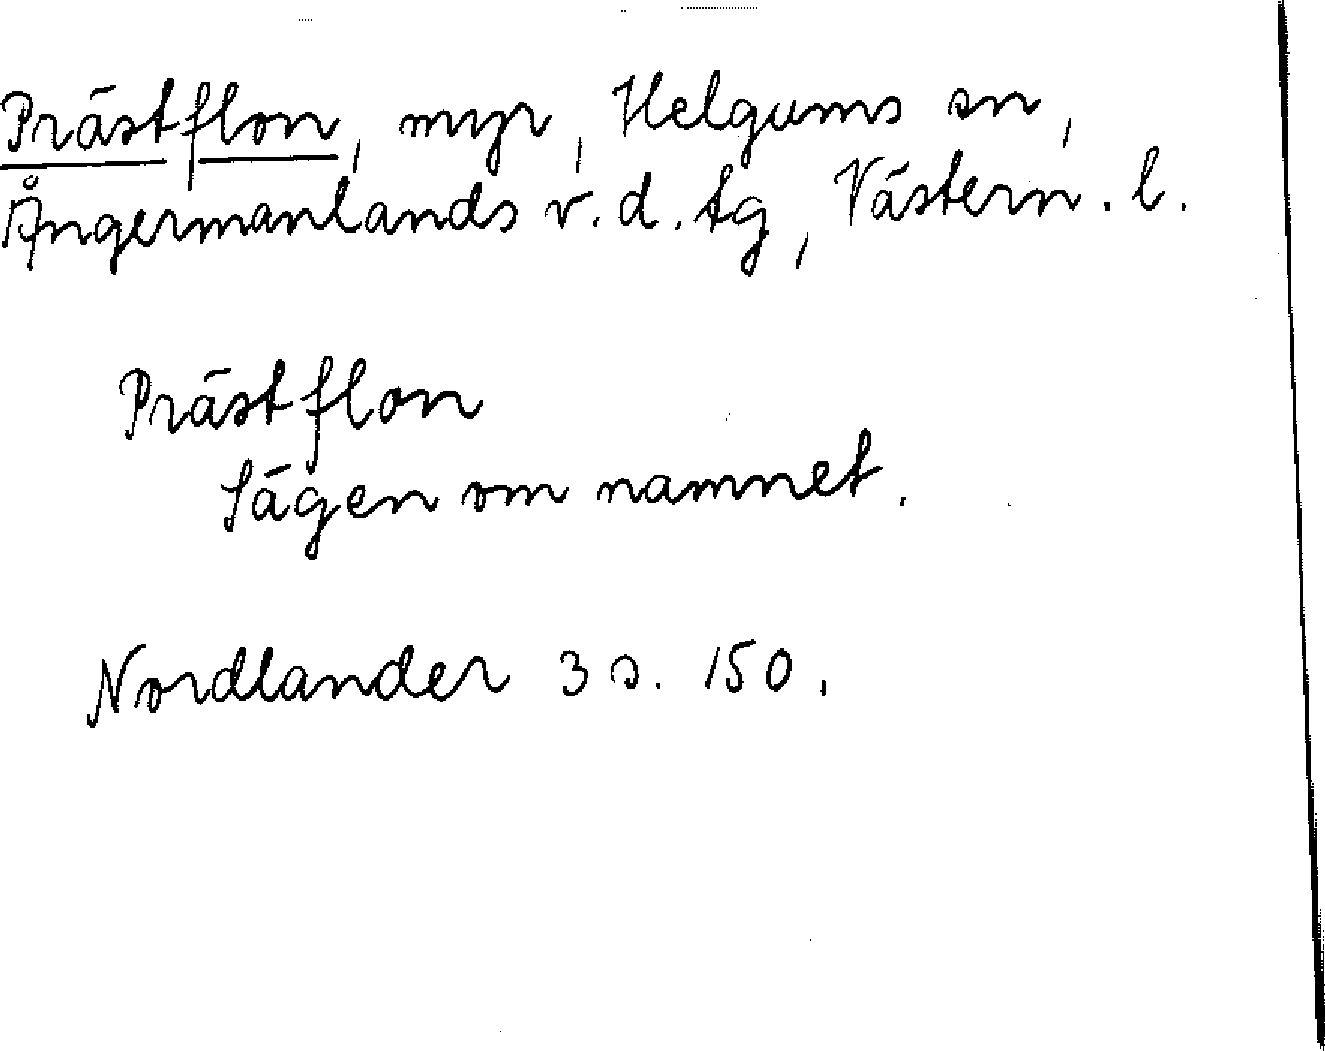 Prästflon, myr, Helgums sn,
Ångermanlands v. d. tg, Västern. l.
Prästflon
Sägen om namnet.
Nordlander 3 s. 150.